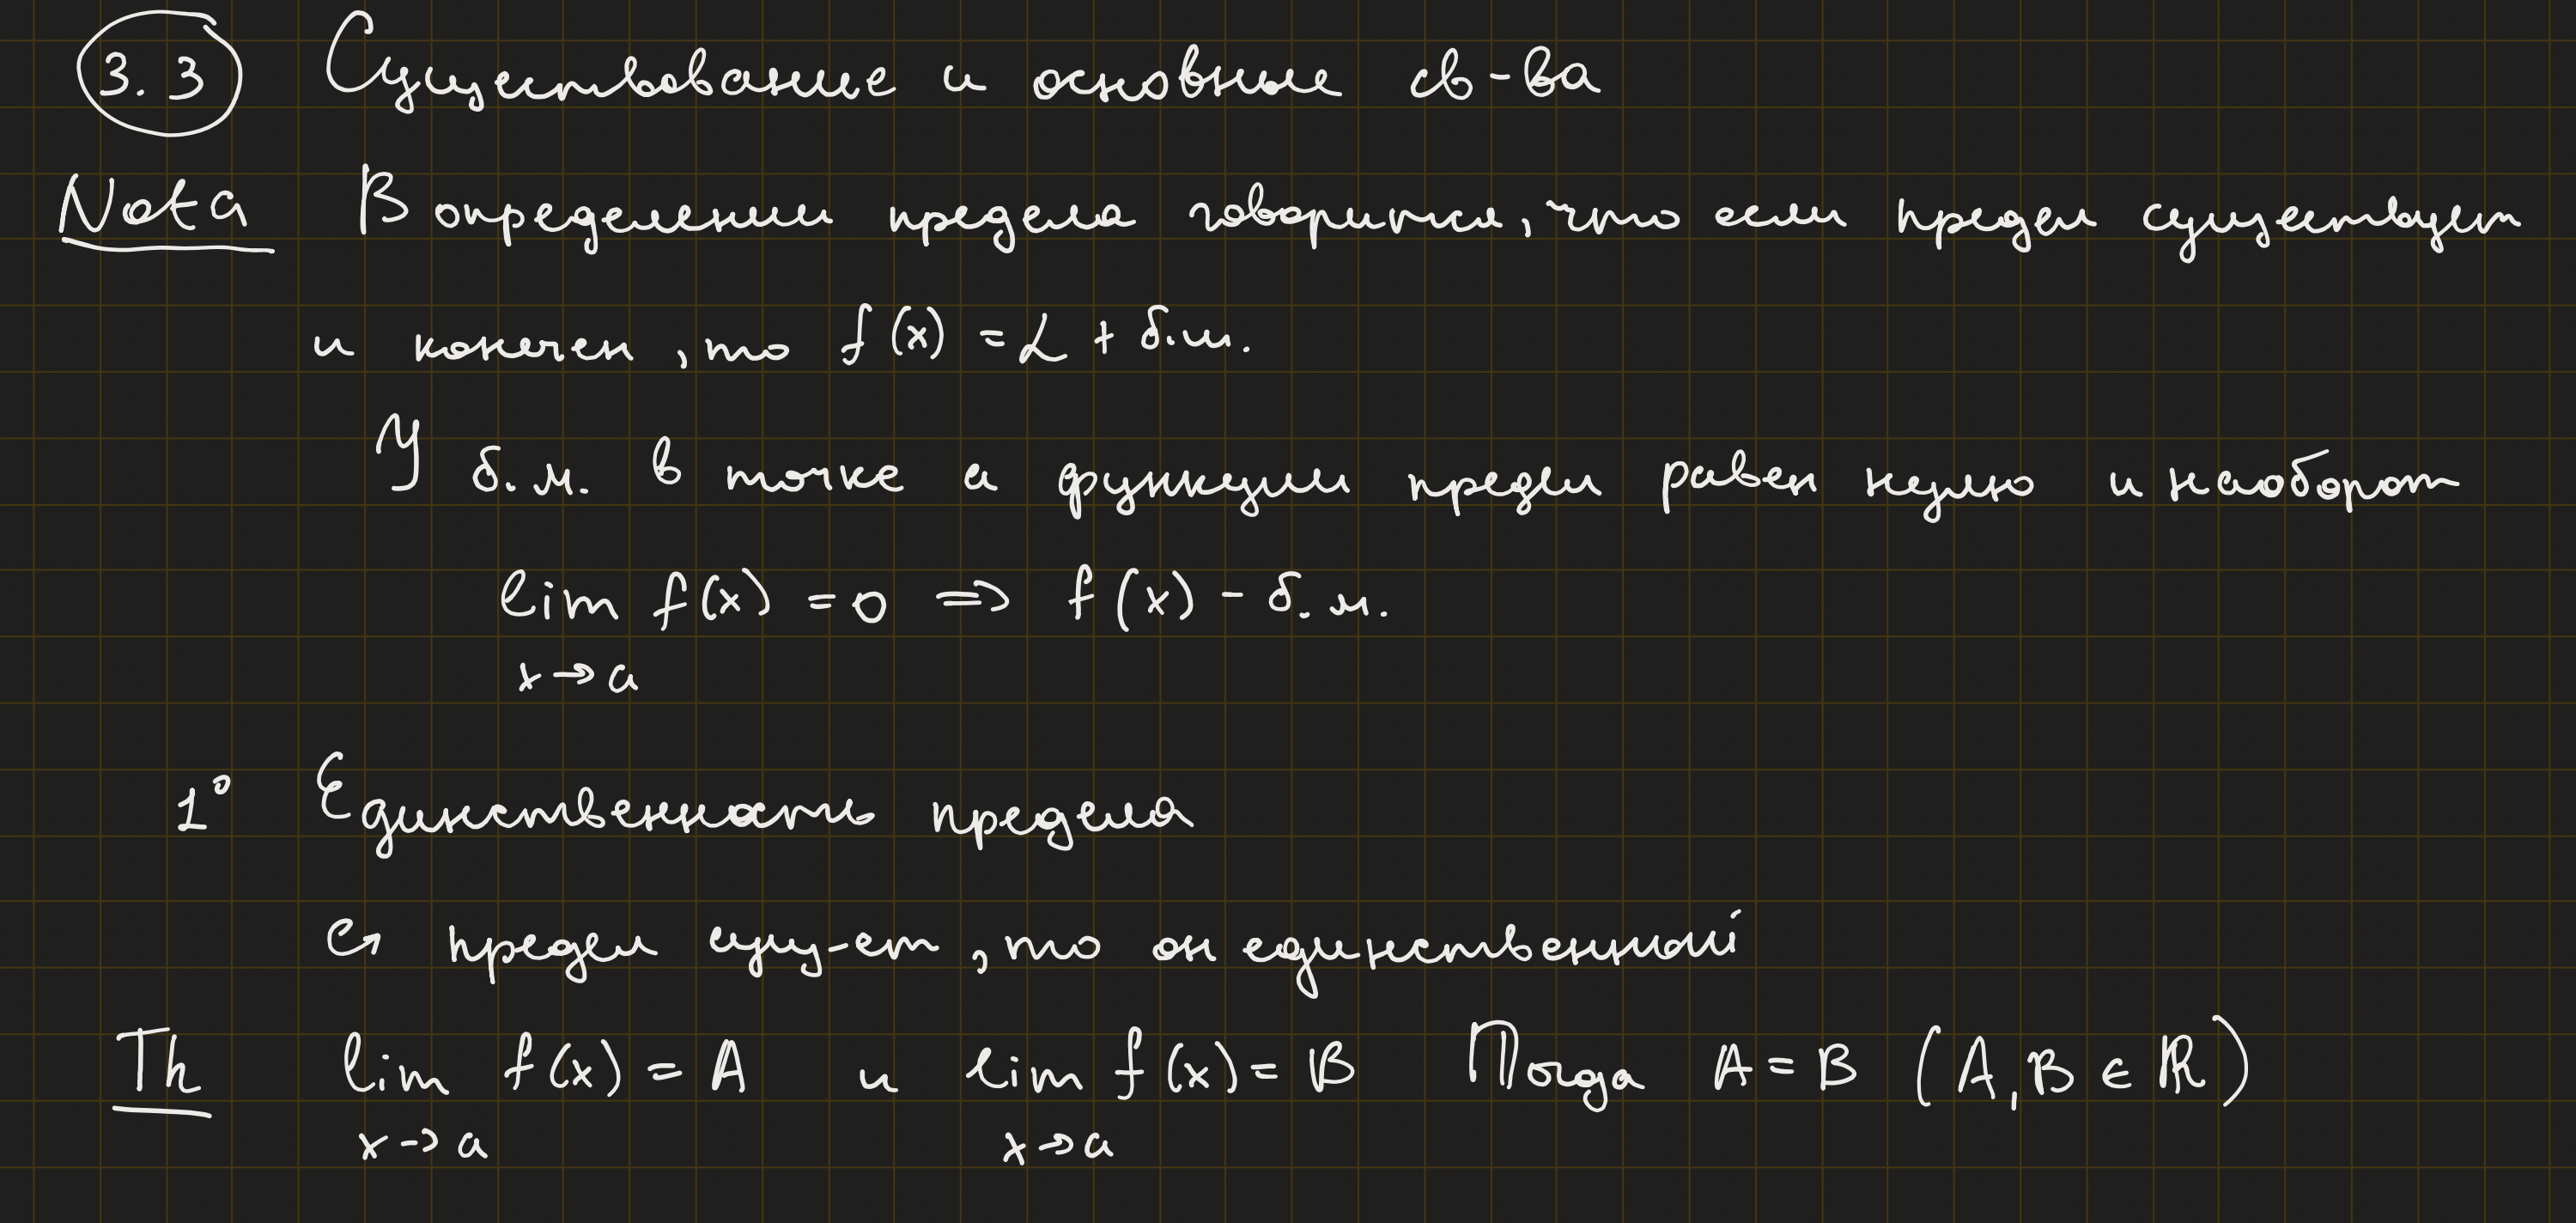 3.3 Существование и основные св-ва
Nota В определении предела говорится, что если предел существует
и конечен, то f(x) = L + б.м.
У б.м. в точке a функции предел равен нулю и наоборот
lim f(x) = 0 => f(x) - б.м.
x→a
1° Единственность предела
предел сущ-ет, то он единственный
Th lim f(x) = A и lim f(x) = B Тогда A = B (A, B ∈ ℝ)
x→a x→a